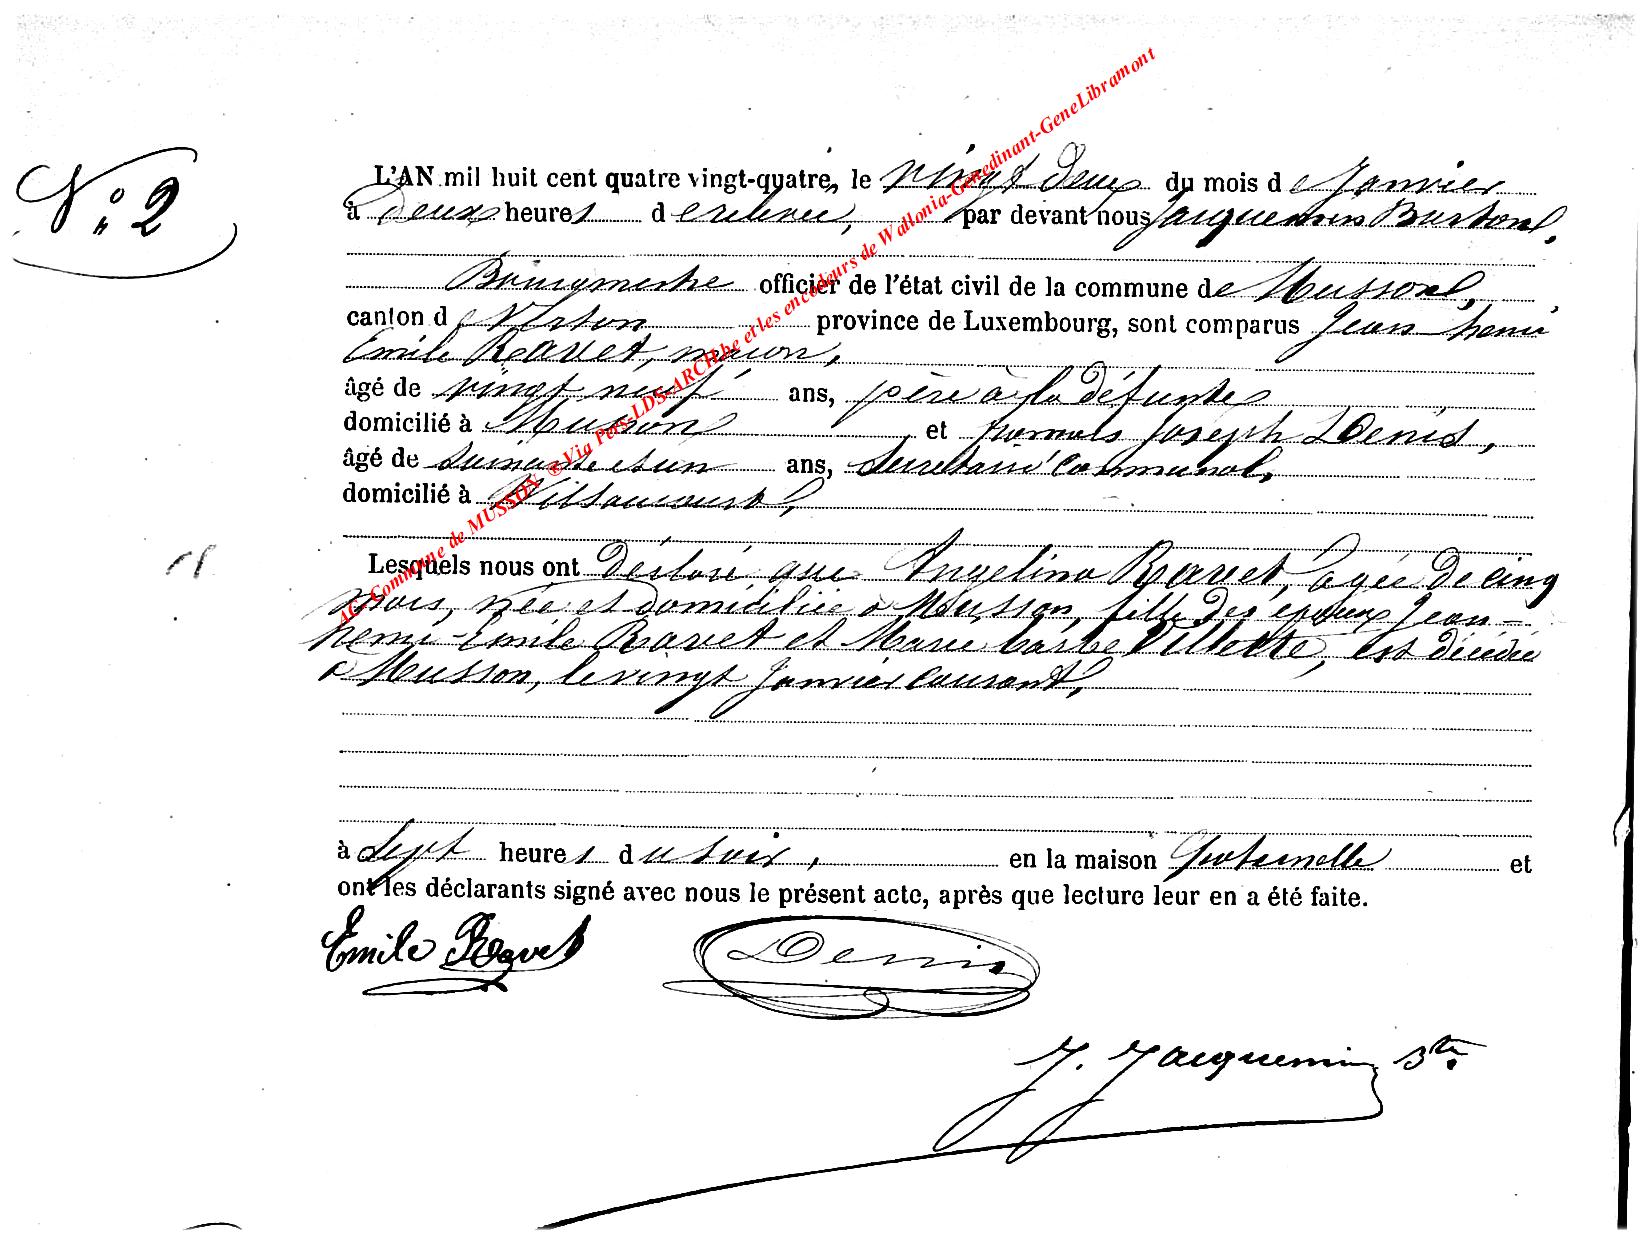 N° 2
L'AN mil huit cent quatre vingt-quatre, le vingt deux du mois de Janvier
à deux heures de relevée, par devant nous Jacquemin
Bourgmestre officier de l'état civil de la commune de Musson,
canton de Virton province de Luxembourg, sont comparus Jean henri
Emile Ravet, maçon,
âgé de vingt neuf ans, père à la défunte
domicilié à Musson et Joseph Denis,
âgé de soixante et un ans, Secrétaire Communal,
domicilié à Willancourt,
Lesquels nous ont déclaré que Angelina Ravet, agée de cinq
mois, née et domiciliée à Musson, fille des époux Jean-
henri-Emile Ravet et Marie barbe Villette, est décédée
à Musson, le vingt Janvier courant,
à Sept heures du soir, en la maison paternelle et
ont les déclarants signé avec nous le présent acte, après que lecture leur en a été faite.
Emile Ravet Denis
J. Jacquemin
AG-Commune de MUSSON ®Via Pers-LDS-ARCH.be et les encodeurs de Wallonia-Genedinant-GeneLibramont